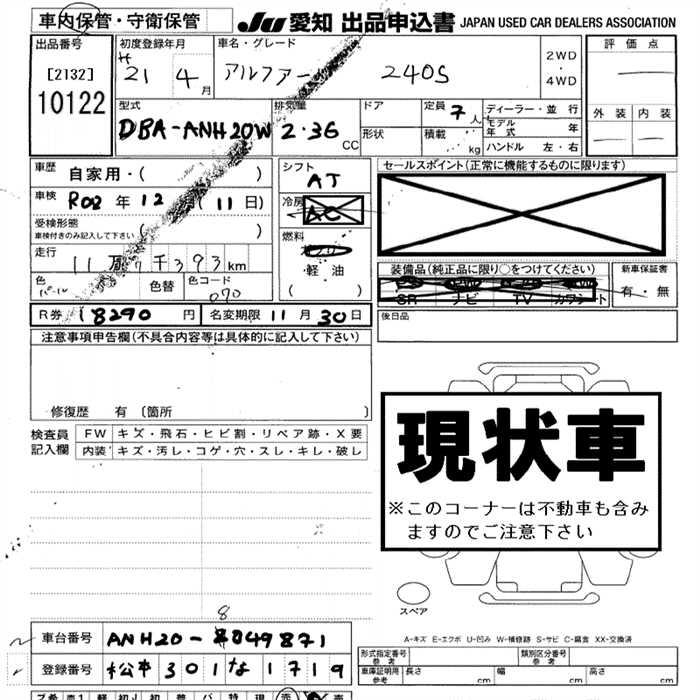 車内保管・守衛保管 JU愛知 出品申込書 JAPAN USED CAR DEALERS ASSOCIATION
出品番号 初度登録年月 車名・グレード 2WD・4WD 評価点
[2132] H 21 4 月 アルファード 240S
10122 外装 内装
型式 排気量 ドア 定員 7 人 ディーラー・並行
DBA-ANH20W 2.36 CC 形状 積載 kg モデル年式 年
ハンドル 左・右
車歴 自家用・( ) シフト AT セールスポイント(正常に機能するものに限ります)
車検 R02 年 12 (11日) 冷房 AC
受検形態
車検付きのみ記入して下さい ( ) 燃料
走行 11万7千393km 軽油 装備品(純正品に限り○をつけてください) 新車保証書
色 パール 色替 色コード 070 ( ) SR ナビ TV カワシート 有・無
R券 18290 円 名変期限 11月30日 後日品
注意事項申告欄(不具合内容等は具体的に記入して下さい)
修復歴 有 〔箇所 〕
検査員記入欄 FW キズ・飛石・ヒビ割・リペア跡・X要
内装 キズ・汚レ・コゲ・穴・スレ・キレ・破レ
現状車
※このコーナーは不動車も含み
ますのでご注意下さい
スペア
8
車台番号 ANH20-8049871
A-キズ E-エクボ U-凹み W-補修跡 S-サビ C-腐食 XX-交換済
登録番号 松本 301 な 1719
形式指定番号 参考 類別区分番号 参考
車庫証明用 参考 長さ cm 幅 cm 高さ cm